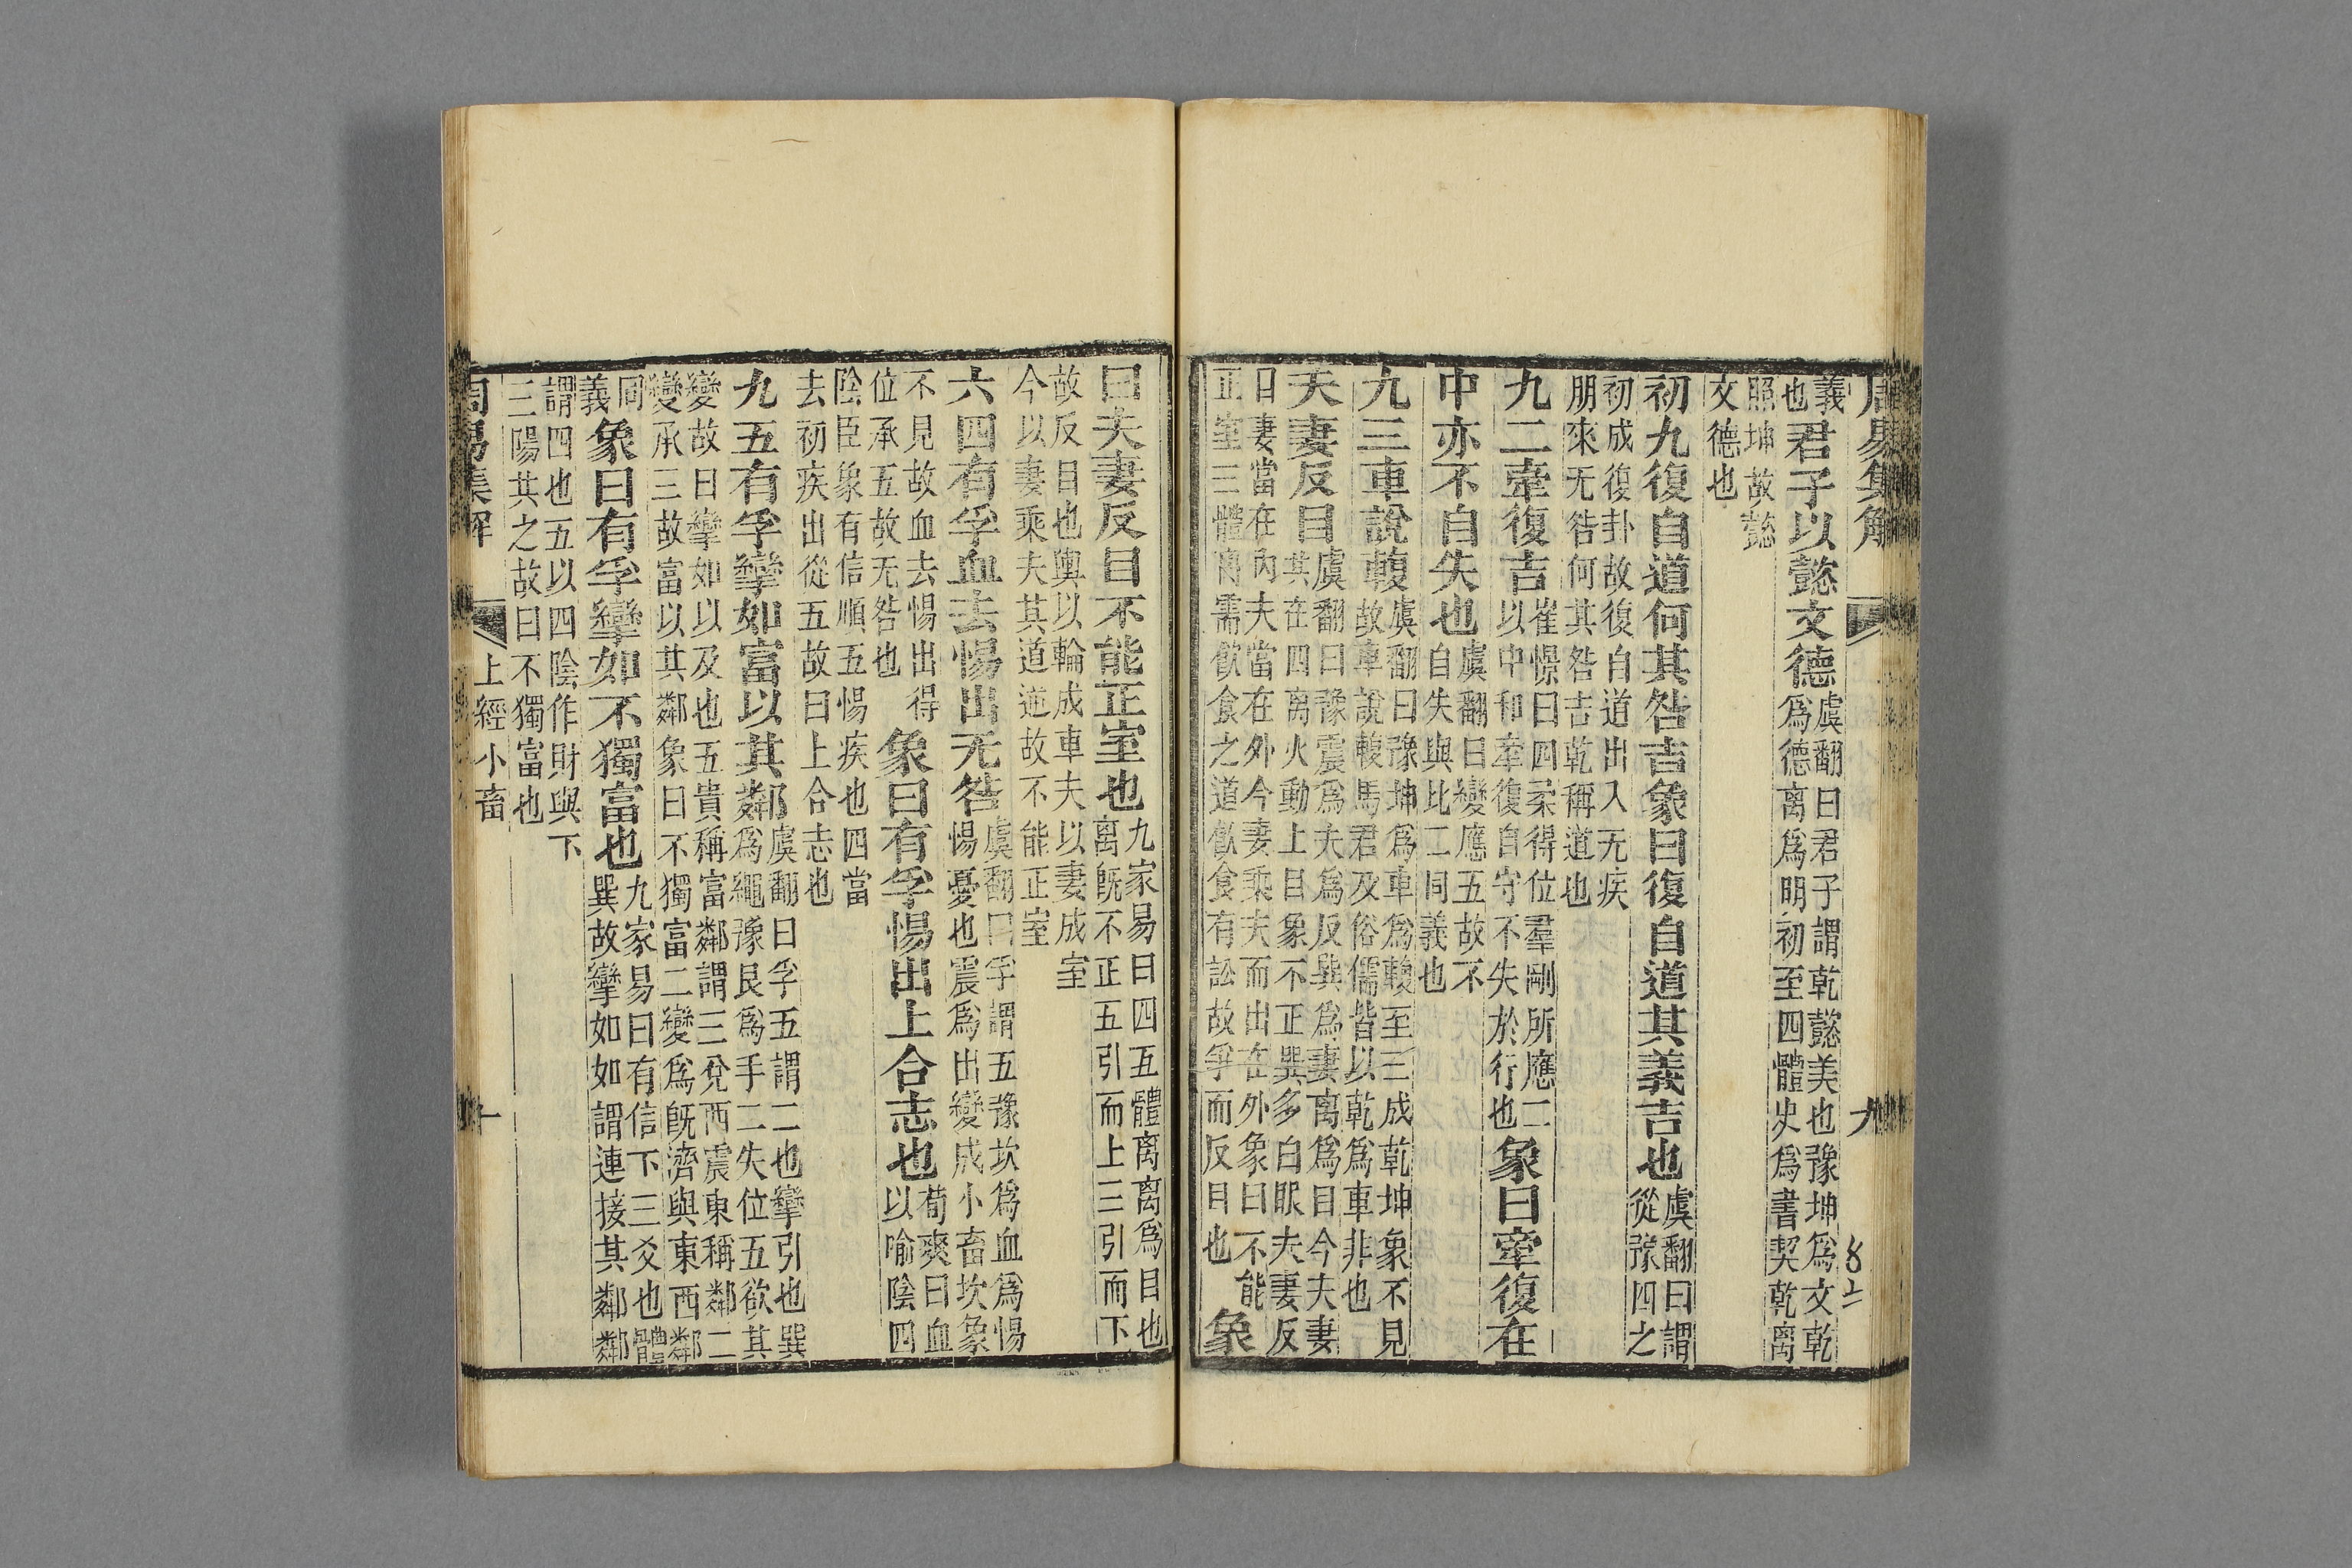 周易集解
九
義也君子以懿文德虞翻曰君子謂乾懿美也豫坤爲文乾
爲德离爲明初至四體夬爲書契乾离
照坤故懿
文德也
初九復自道何其咎吉象曰復自道其義吉也虞翻曰謂
從豫四之
初成復卦故復自道出入无疾
朋來无咎何其咎吉乾稱道也
九二牽復吉崔憬曰四柔得位羣剛所應二
以中和牽復自守不失於行也象曰牽復在
中亦不自失也虞翻曰變應五故不
自失與比二同義也
九三車說輹虞翻曰豫坤爲車爲輹至三成乾坤象不見
故車說輹馬君及俗儒皆以乾爲車非也
夫妻反目虞翻曰豫震爲夫爲反巽爲妻离爲目今夫妻
其在四离火動上目象不正巽多白眼夫妻反
目妻當在內夫當在外今妻乘夫而出在外象曰不能
正室三體离需飲食之道飲食有訟故爭而反目也象
曰夫妻反目不能正室也九家易曰四五體离离爲目也
离旣不正五引而上三引而下
故反目也輿以輪成車夫以妻成室
今以妻乘夫其道逆故不能正室
六四有孚血去惕出无咎虞翻曰孚謂五豫坎爲血爲惕
惕憂也震爲出變成小畜坎象
不見故血去惕出得
位承五故无咎也象曰有孚惕出上合志也荀爽曰血
以喻陰四
陰臣象有信順五惕疾也四當
去初疾出從五故曰上合志也
九五有孚攣如富以其鄰虞翻曰孚五謂二也攣引也巽
爲繩豫艮爲手二失位五欲其
變故曰攣如以及也五貴稱富鄰謂三兌西震東稱鄰二
變承三故富以其鄰象曰不獨富二變爲旣濟與東西鄰
同
義象曰有孚攣如不獨富也九家易曰有信下三爻也體
巽故攣如如謂連接其鄰鄰
謂四也五以四陰作財與下
三陽共之故曰不獨富也
周易集解
上經小畜
十